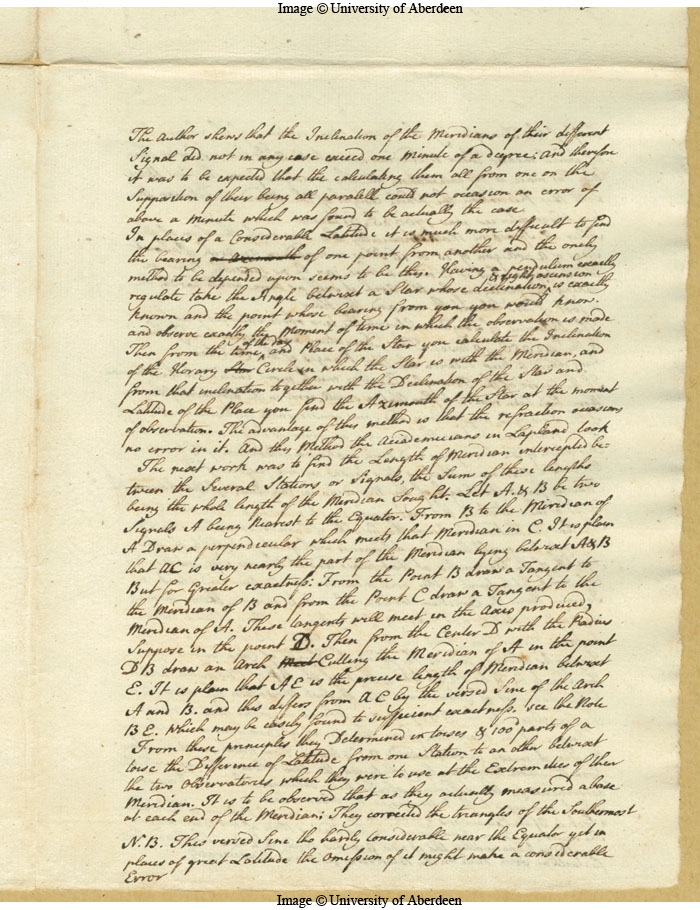 Image © University of Aberdeen
The Author shews that the Inclination of the Meridians of their different
Signal did not in any case exceed one Minute of a degree; And therefore
it was to be expected that the calculating them all from one on the
Supposition of their being all paralell could not occasion an error of
above a Minute which was found to be actually the case
In places of a Considerable Latitude it is much more difficult to find
the bearing or Azimuth of one point from another and the onely
method to be depended upon seems to be this. Having a pendulum exactly
& right ascension
regulate take the Angle betwixt a Star whose declination is exactly
known and the point whose bearing from you you would know.
and observe exactly the Moment of time in which the observation is made
of the day
Then from the time and Place of the Star you calculate the Inclination
of the Horary Circle in which the Star is with the Meridian, and
from that inclination together with the Declination of the Star and
Latitude of the Place you find the Azimuth of the Star at the moment
of observation. The advantage of this method is that the refraction occasions
no error in it. And this Method the Academicians in Lapland took
The next work was to find the Length of Meridian intercepted be-
tween the Several Stations or Signals, the Sum of these lengths
being the whole length of the Meridian Sought. Let A & B be two
Signals A being Nearest to the Equator. From B to the Meridian of
A Draw a perpendicular which meets that Meridian in C. It is plain
that AC is very nearly the part of the Meridian lying betwixt A & B
But for Greater exactness: From the Point B draw a Tangent to
the Meridian of B and from the Point C draw a Tangent to the
Meridian of A. These tangents will meet in the Axis produced,
Suppose in the point D. Then from the Center D with the Radius
DB draw an Arch Meet Cutting the Meridian of A in the point
E. It is plain that AE is the precise length of Meridian betwixt
A and B. and this differs from AC by the versed Sine of the Arch
BE. which may be easily found to sufficient exactness. see the Note
From these principles they Determined in toises & 100 parts of a
toise the Difference of Latitude from one Station to an other betwixt
the two Observatories which they were to use at the Extremities of their
Meridian. It is to be observed that as they actually measured a base
at each end of the Meridian; They corrected the triangles of the Southermost
N.B. This versed Sine tho hardly considerable near the Equator yet in
places of great Latitude the Omission of it might make a considerable
Error
Image © University of Aberdeen